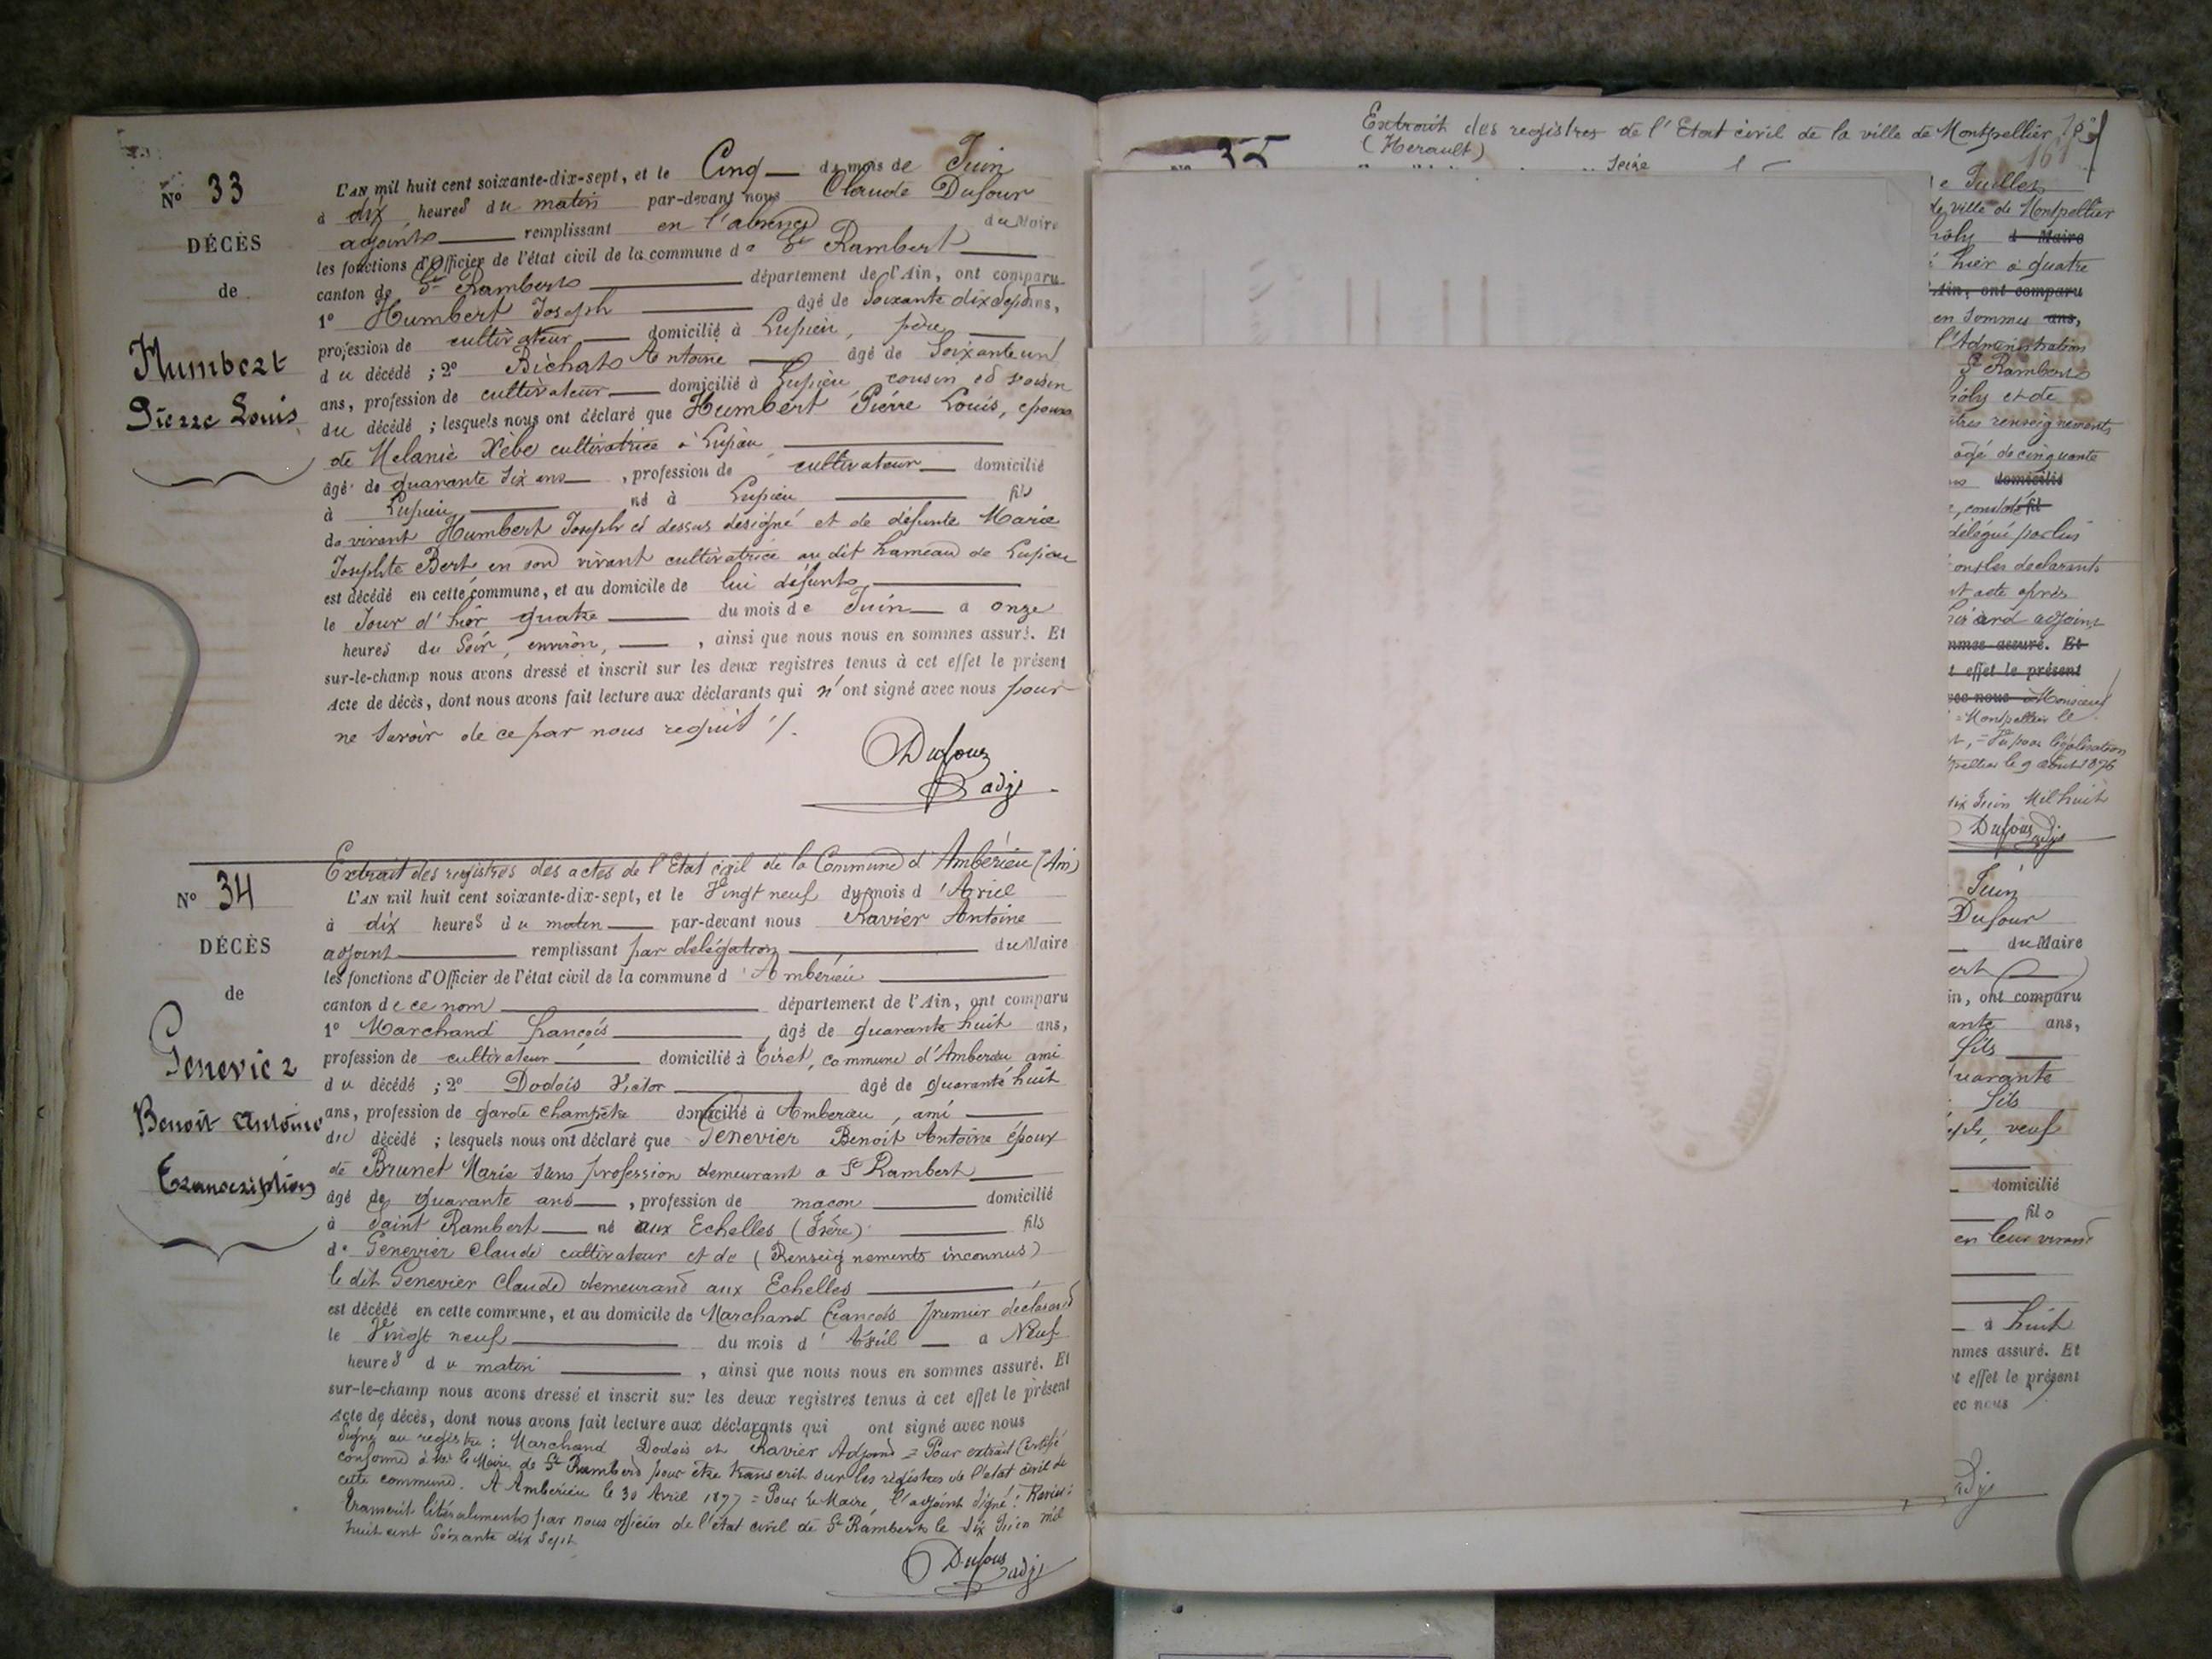 N° 33
DÉCÈS
de
Humbert
Pierre Louis
L'AN mil huit cent soixante-dix-sept, et le Cinq du mois de Juin
à dix heures du matin par-devant nous Claude Dufour
adjoint remplissant en l'absence du Maire
les fonctions d'Officier de l'état civil de la commune de St Rambert
canton de St Rambert département de l'Ain, ont comparu
1° Humbert Joseph âgé de Soixante dix sept ans,
profession de cultivateur domicilié à Lupieu, père
du décédé ; 2° Bichat Antoine âgé de Soixante un
ans, profession de cultivateur domicilié à Lupieu cousin et voisin
du décédé ; lesquels nous ont déclaré que Humbert Pierre Louis, époux
de Melanie cultivatrice à Lupieu
âgé de quarante six ans, profession de cultivateur domicilié
à Lupieu né à Lupieu fils
de vivant Humbert Joseph ci dessus désigné et de défunte Marie
Josephte Bert en son vivant cultivatrice au dit hameau de Lupieu
est décédé en cette commune, et au domicile de lui défunt
le Jour d'hier quatre du mois de Juin à onze
heures du Soir, environ, , ainsi que nous nous en sommes assuré. Et
sur-le-champ nous avons dressé et inscrit sur les deux registres tenus à cet effet le présent
Acte de décès, dont nous avons fait lecture aux déclarants qui n'ont signé avec nous pour
ne savoir de ce par nous requit
Dufour
adjt
N° 34
DÉCÈS
de
Genevier
Benoit Antoine
Transcription
Extrait des registres des actes de l'Etat civil de la Commune d'Ambérieu (Ain)
L'AN mil huit cent soixante-dix-sept, et le Vingt neuf du mois d'Avril
à dix heures du matin par-devant nous Ravier Antoine
adjoint remplissant par délégation du Maire
les fonctions d'Officier de l'état civil de la commune d'Ambérieu
canton de ce nom département de l'Ain, ont comparu
1° Marchand François âgé de quarante huit ans,
profession de cultivateur domicilié à Tiret, commune d'Ambérieu ami
du décédé ; 2° Dodois Victor âgé de quarante huit
ans, profession de garde champêtre domicilié à Ambérieu, ami
du décédé ; lesquels nous ont déclaré que Genevier Benoit Antoine époux
de Brunet Marie sans profession demeurant à St Rambert
âgé de quarante ans, profession de maçon domicilié
à Saint Rambert né aux Echelles (Isère) fils
de Genevier Claude cultivateur et de (Renseignements inconnus)
le dit Genevier Claude demeurant aux Echelles
est décédé en cette commune, et au domicile de Marchand François premier déclarant
le Vingt neuf du mois d'Avril à Neuf
heures du matin , ainsi que nous nous en sommes assuré. Et
sur-le-champ nous avons dressé et inscrit sur les deux registres tenus à cet effet le présent
Acte de décès, dont nous avons fait lecture aux déclarants qui ont signé avec nous
Signé au registre : Marchand Dodois et Ravier Adjoint = Pour extrait Certifié
conforme à Mr le Maire de St Rambert pour être transcrit sur les registres de l'état civil de
cette commune. A Ambérieu le 30 Avril 1877 = Pour le Maire, l'adjoint Signé : Ravier
Transcrit litéralement par nous officier de l'état civil de St Rambert le dix Juin mil
huit cent Soixante dix Sept
Dufour adjt
Extrait des registres de l'Etat civil de la ville de Montpellier
(Herault)
35
Seize
le Juillet
de ville de Montpellier
Maire
hier à quatre
Ain, ont comparu
en sommes ans,
l'Administration
St Rambert
et de
renseignements
âgé de cinquante
domicilié
fil
délégué par lui
ont les déclarants
acte après
adjoint
mmes assuré. Et
t effet le présent
vec nous Monsieur
Montpellier le
pour légalisation
le 9 aout 1876
dix Juin Mil huit
Dufour adjt
Juin
Dufour
du Maire
ert
in, ont comparu
ante ans,
fils
quarante
fils
veuf
domicilié
fils
en leur vivant
à huit
mmes assuré. Et
t effet le présent
ec nous
adjt